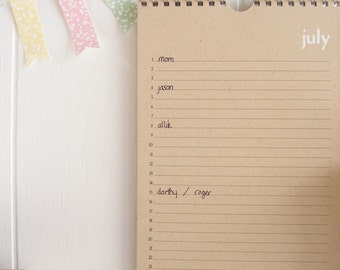 july
1 mom
2
3
4 jason
5
6
7
8 allie
9
10
11
12
13
14
15 dorthy / roger
16
17
18
19
20
21
22
23